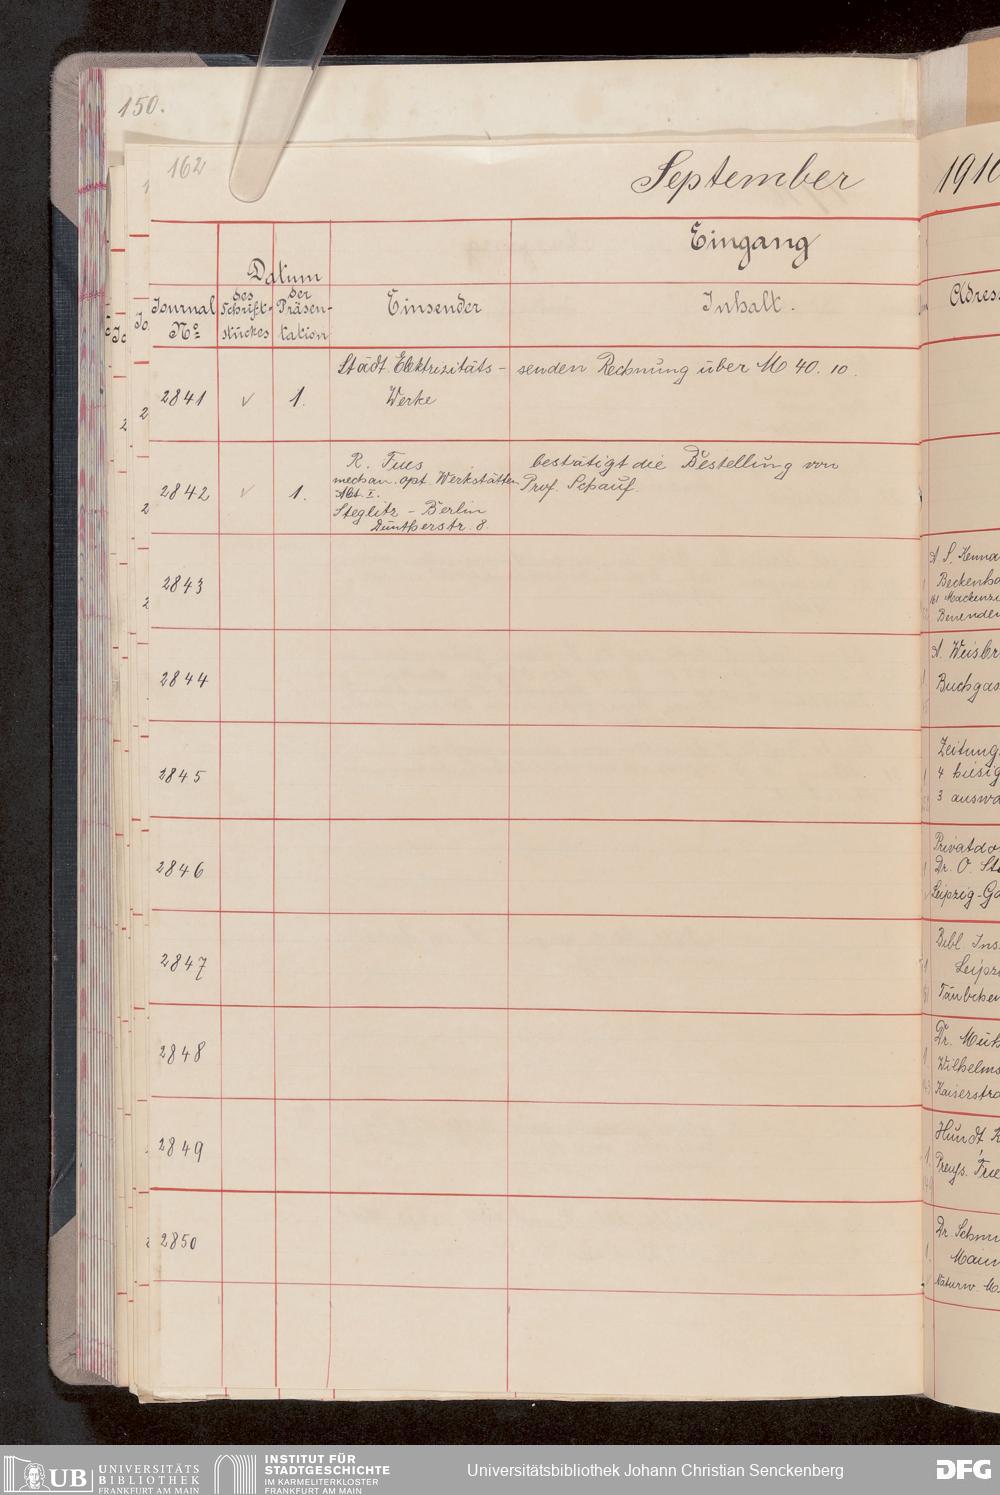 150.
162
September
1910
Eingang
Datum
Journal
No
des
Schrift-
stückes
der
Präsen-
tation
Einsender
Inhalt.
2841
1.
Städt. Elektrizitäts-
Werke
senden Rechnung über M 40. 10.
2842
1.
R. Fues
mechan. opt. Werkstätten
Abt. I.
Steglitz - Berlin
Düntherstr. 8.
bestätigt die Bestellung von
Prof. Schauf.
2843
2844
Buchgas
2845
Zeitung
4 hiesig
3 auswä
2846
Privatdo
Dr. O. Ste
Leipzig-Go
2847
Bibl Ins
Leipzi
Täubchen
2848
Wilhelms
Kaiserstra
2849
Hundt
Preuss.
2850
Dr. Schmi
Main
Naturw. M
UB
UNIVERSITÄTS
BIBLIOTHEK
FRANKFURT AM MAIN
INSTITUT FÜR
STADTGESCHICHTE
IM KARMELITERKLOSTER
FRANKFURT AM MAIN
Universitätsbibliothek Johann Christian Senckenberg
DFG